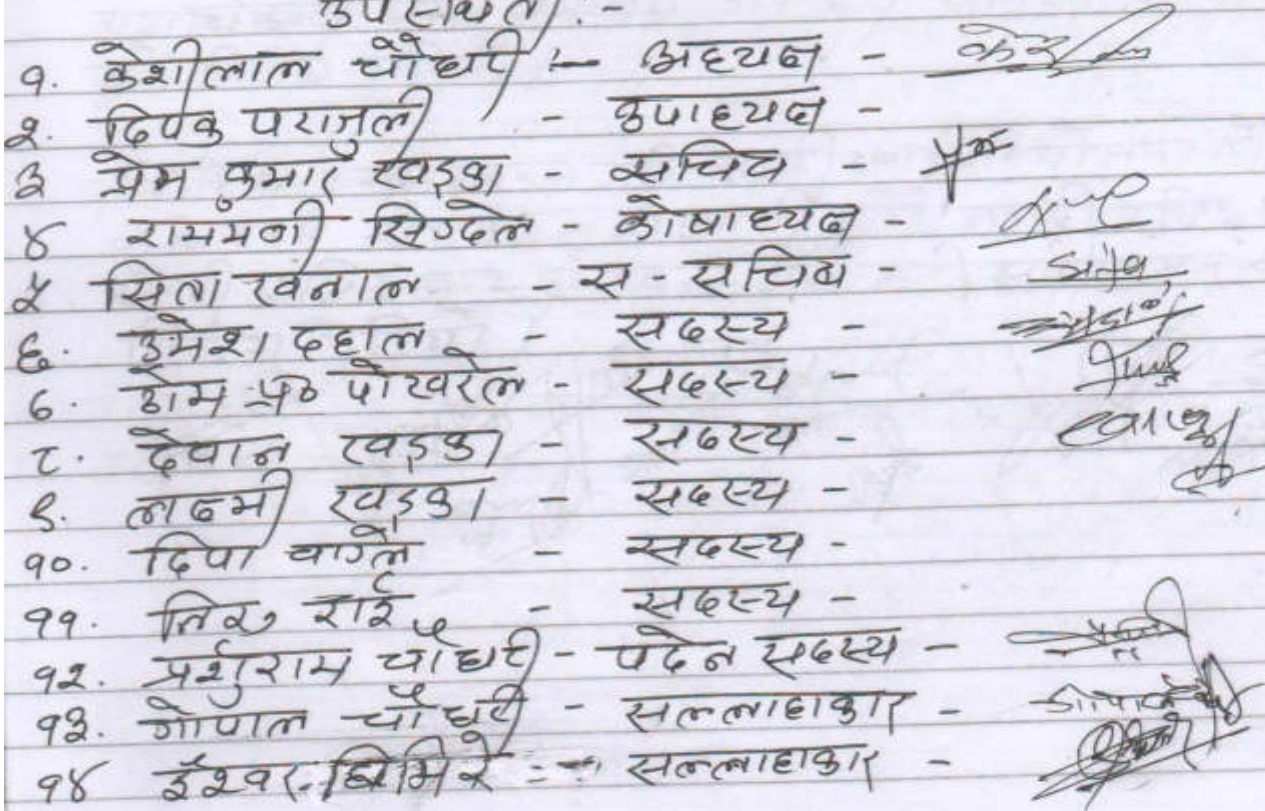 उपस्थिती :-
१. केशीलाल चौधरी :- अध्यक्ष -
२. दिपक पराजुली - उपाध्यक्ष -
३ प्रेम कुमार खड्का - सचिव - प्रेम
४ राममणी सिग्देल - कोषाध्यक्ष -
५ सिता खनाल - स - सचिव -
६. उमेश दहाल - सदस्य -
७. डोम प्र० पोखरेल - सदस्य -
८. देवान खड्का - सदस्य -
९. लक्ष्मी खड्का - सदस्य -
१०. दिपा वाग्ले - सदस्य -
११. राई - सदस्य -
१२. प्रर्शुराम चौधरी - पदेन सदस्य -
१३. गोपाल चौधरी - सल्लाहाकार -
१४ ईश्वर घिमिरे :- सल्लाहाकार -